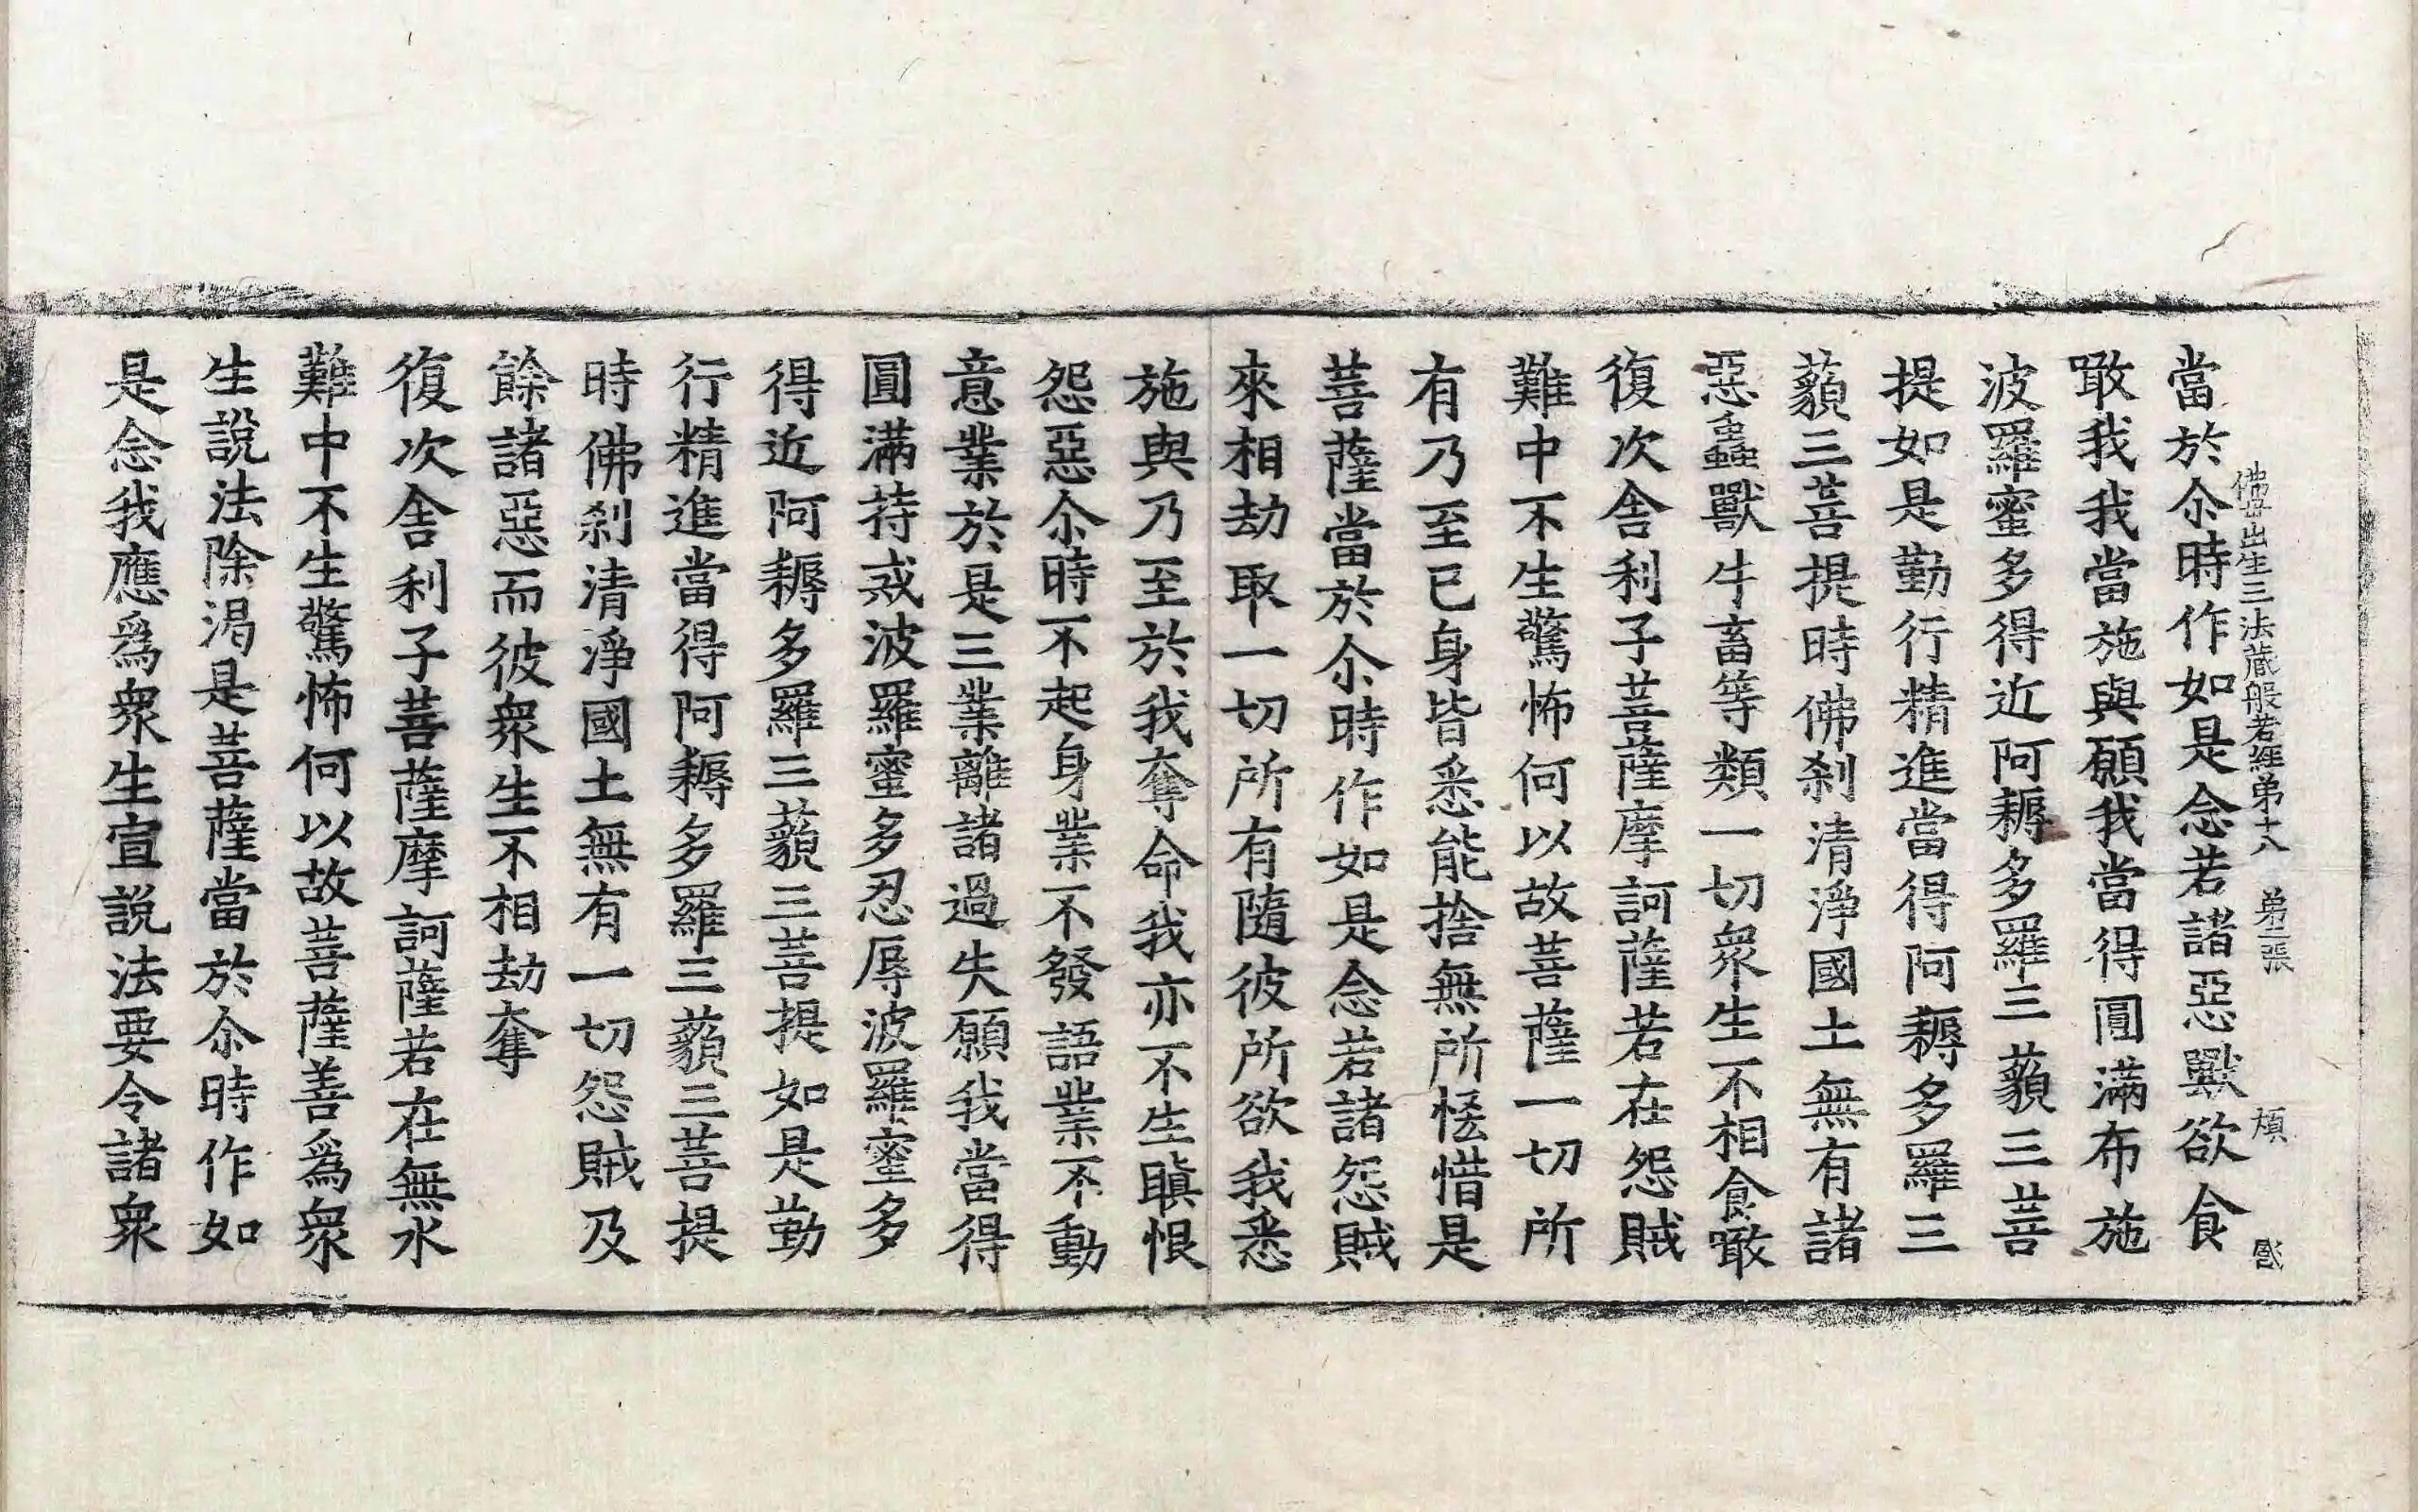 佛母出生三法藏般若經第十八 第二張 頗
當於尒時作如是念若諸惡獸欲食
噉我我當施與願我當得圓滿布施
波羅蜜多得近阿耨多羅三藐三菩
提如是勤行精進當得阿耨多羅三
藐三菩提時佛刹清淨國土無有諸
惡蟲獸牛畜等類一切衆生不相食噉
復次舍利子菩薩摩訶薩若在怨賊
難中不生驚怖何以故菩薩一切所
有乃至已身皆悉能捨無所恡惜是
菩薩當於尒時作如是念若諸怨賊
來相劫取一切所有隨彼所欲我悉
施與乃至於我奪命我亦不生瞋恨
怨惡尒時不起身業不發語業不動
意業於是三業離諸過失願我當得
圓滿持戒波羅蜜多忍辱波羅蜜多
得近阿耨多羅三藐三菩提如是勤
行精進當得阿耨多羅三藐三菩提
時佛刹清淨國土無有一切怨賊及
餘諸惡而彼衆生不相劫奪
復次舍利子菩薩摩訶薩若在無水
難中不生驚怖何以故菩薩善爲衆
生說法除渴是菩薩當於尒時作如
是念我應爲衆生宣說法要令諸衆